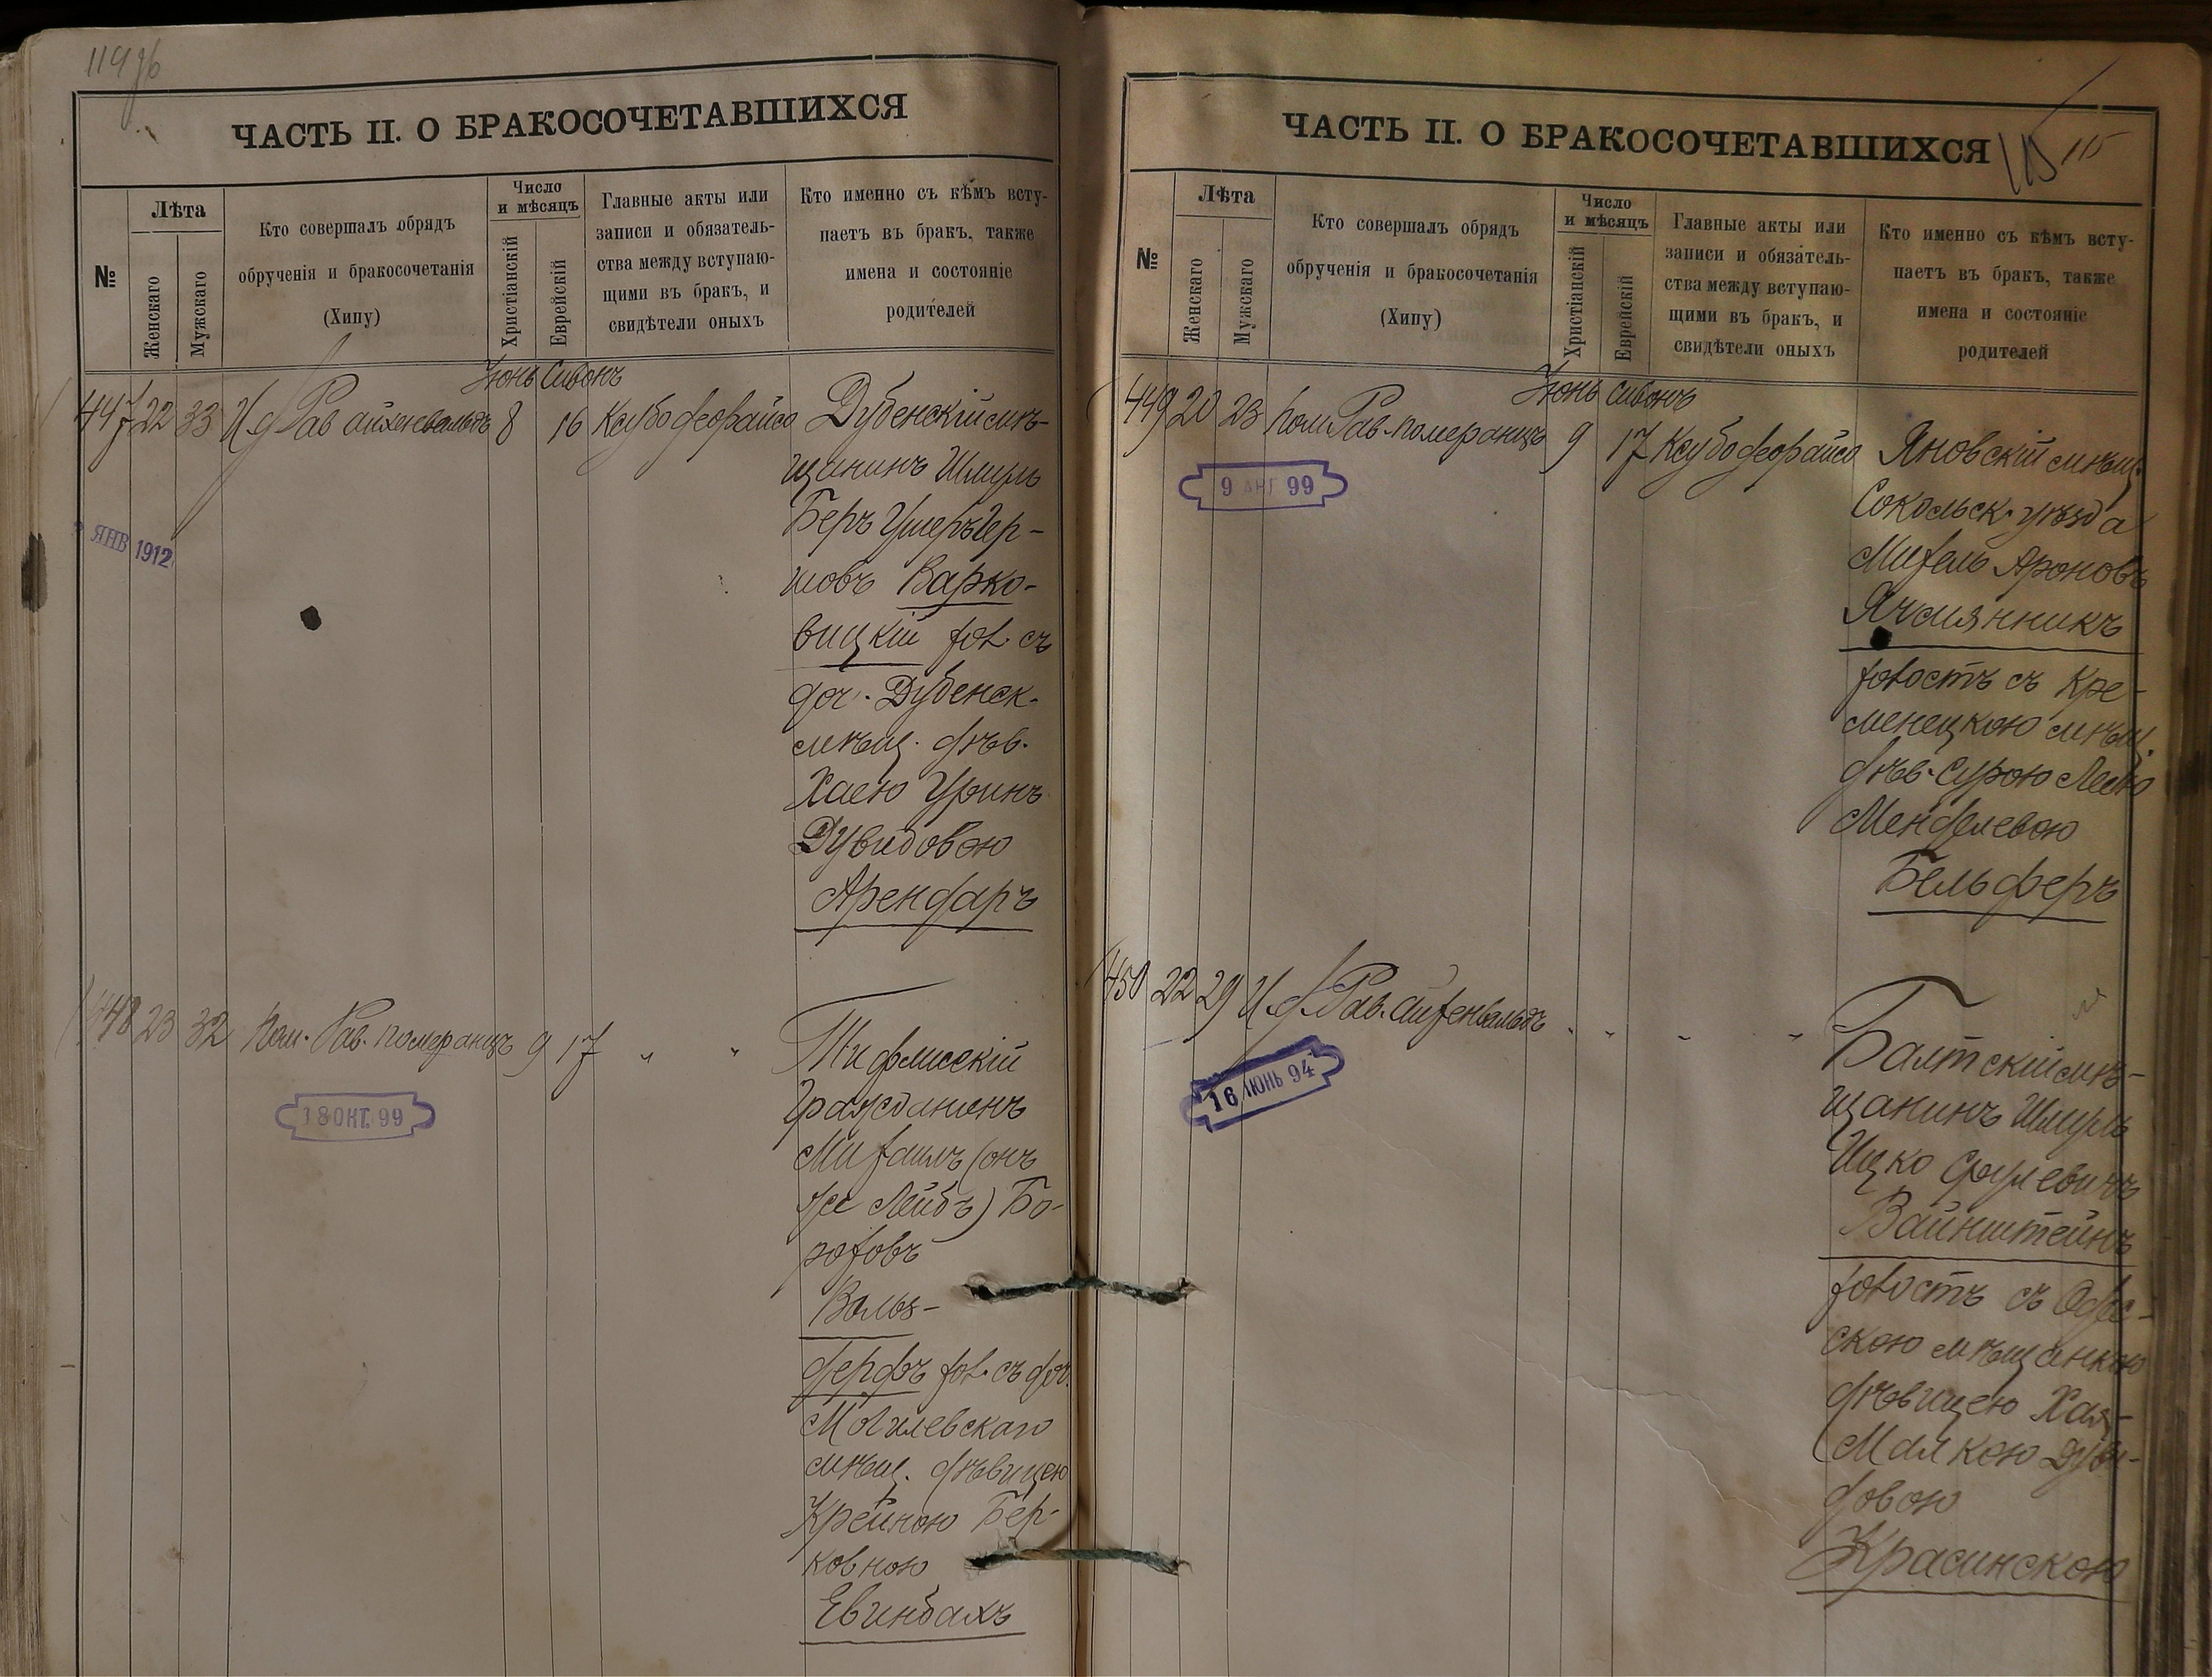 119об
ЧАСТЬ II. О БРАКОСОЧЕТАВШИХСЯ
№
Лѣта
Женскаго
Мужскаго
Кто совершалъ обрядъ
обрученія и бракосочетанія
(Хипу)
Число
и мѣсяцъ
Христіанскій
Еврейскій
Главные акты или
записи и обязатель-
ства между вступаю-
щими въ бракъ, и
свидѣтели оныхъ
Кто именно съ кѣмъ всту-
паетъ въ бракъ, также
имена и состояніе
родителей
Іюнь Сивонъ
447 22 33 И д Рав Айхенвальдъ 8 16 Ксубо деорайсо Дубенскій мѣ-
щанинъ Шмуль
Беръ Ушеръ Гер-
шовъ Варко-
вицкій хол. съ
доч. Дубенск.
мѣщ. дѣв.
Хаею Уринъ
Дувидовою
Арендаръ
ЯНВ 1912
448 23 32 Пом. Рав. Померанцъ 9 17 " " Тифлисскій
Гражданинъ
Михаилъ (онъ
же Лейбъ) Бо-
роховъ
Вольз-
дердъ хол. съ доч.
Могилевскаго
мѣщ. дѣвицею
Крейною Бер-
ковною
Евинбахъ
18 ОКТ. 99
ЧАСТЬ II. О БРАКОСОЧЕТАВШИХСЯ
115 115
№
Лѣта
Женскаго
Мужскаго
Кто совершалъ обрядъ
обрученія и бракосочетанія
(Хипу)
Число
и мѣсяцъ
Христіанскій
Еврейскій
Главные акты или
записи и обязатель-
ства между вступаю-
щими въ бракъ, и
свидѣтели оныхъ
Кто именно съ кѣмъ всту-
паетъ въ бракъ, также
имена и состояніе
родителей
Іюнь Сивонъ
449 20 23 Пом Рав. Померанцъ 9 17 Ксубо деорайсо Яновскій мѣщ.
Сокольск. уѣзда
Михель Ароновъ
Ячмянникъ
холостъ съ Кре-
менецкою мѣщ.
дѣв. Сурою Леею
Менделевою
Бельферъ
9 АВГ 99
450 22 29 И. д Рав. Айхенвальдъ " " " " Балтскій мѣ-
щанинъ Шмуль
Ицко Срулевичъ
Вайнштейнъ
холостъ съ Одес-
скою мѣщанкою
дѣвицею Хая-
Малкою Дуви-
довою
Красинскою
16 ІЮНЬ 94